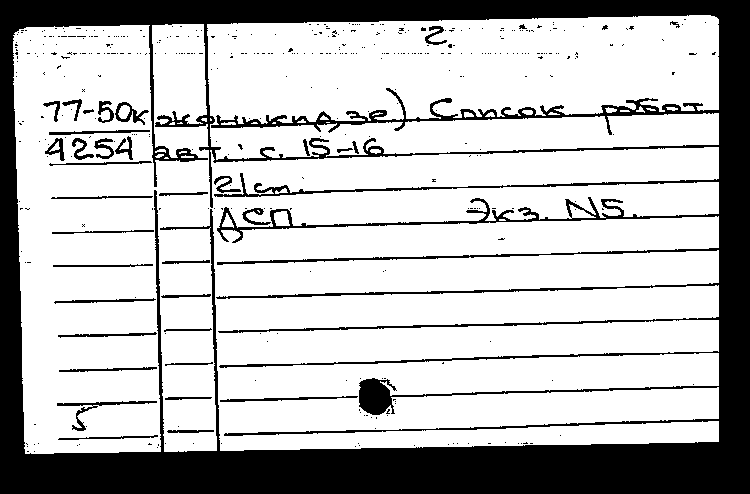 2.
77-50к жоникидзе). Список работ
4254 авт.: с. 15-16
21 cm.
ДСП. Экз. N5.
5